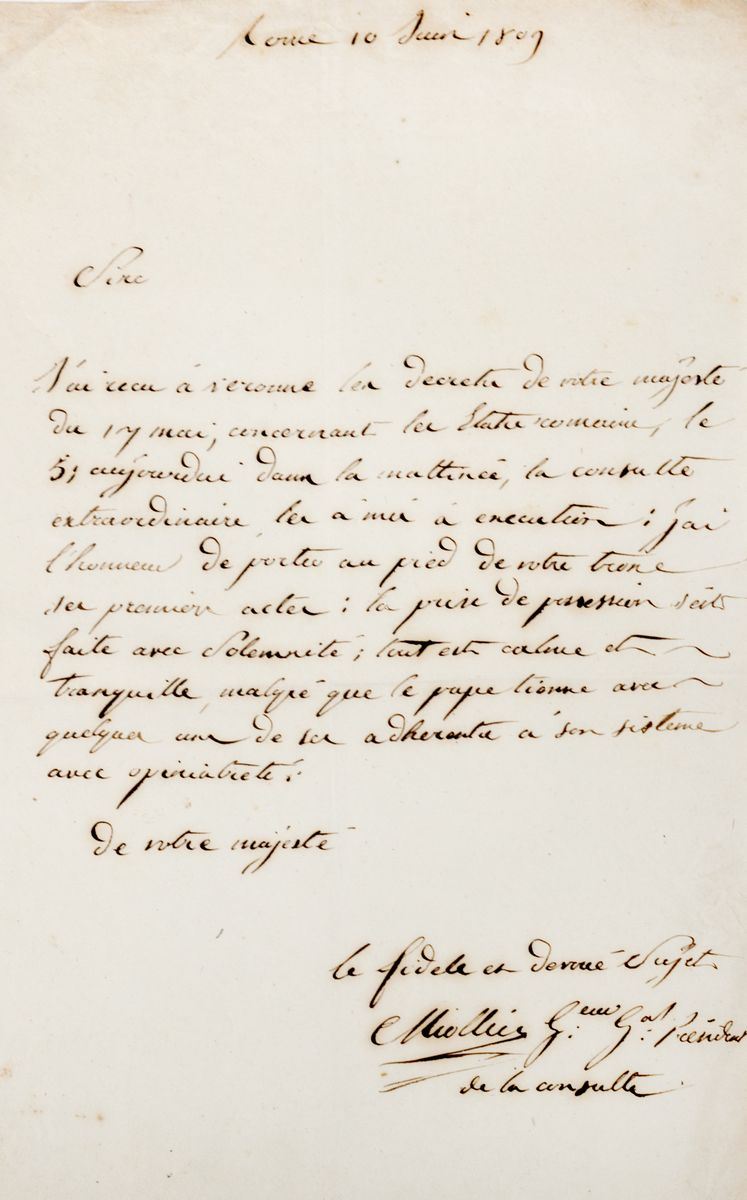 Rome 10 Juin 1809
Sire
J'ai recu à veronne les decrets de votre majesté
du 17 mai, concernant les Etats romains, le
5; aujourdui dans la mattineé, la consulte
extraordinaire les a mis à execution; j'ai
l'honneur de porter au pied de votre trone
ses premiers actes: la prise de possession s'est
faite avec Solemnité; tout est calme et
tranquille, malgré que le pape tienne avec
quelques uns de ses adherents à son sisteme
avec opiniatreté.
de votre majesté
le fidele et devoué Sujet
Miollis G.eur G.al Président
de la consulte